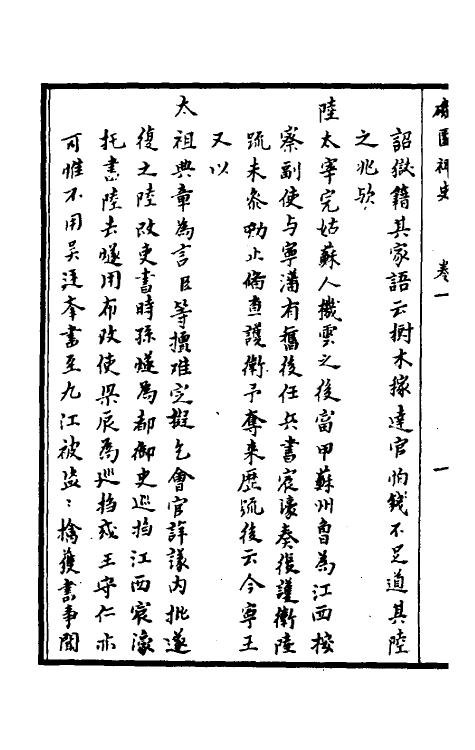 稗史 卷一 一
詔獄籍其家語云樹木稼達官怕錢不足道其陸
之兆欤
陸太宰完姑蘇人機雲之後富甲蘇州曾為江西按
察副使与寧藩有舊後任兵書宸濠奏復護衛陸
疏未參劾止偹查護衛予奪来歷疏後云今寧王
又以
太祖典章為言臣等擅难定擬乞會官詳議内批遂
復之陸改吏書時孫燧為都御史巡撫江西宸濠
托書陸去燧用布政使梁辰為巡撫或王守仁亦
可惟不用吴廷奉書至九江被盗〻擒獲書事聞